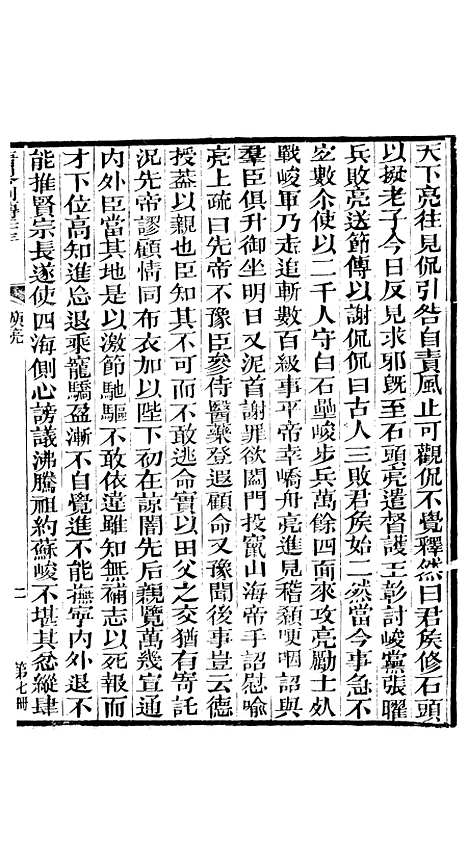 天下亮往見侃引咎自責風止可觀侃不覺釋然曰君矦修石頭
以擬老子今日反見求邪旣至石頭亮遣督護王彰討峻黨張曜
兵敗亮送節傳以謝侃曰古人三敗君矦始二然當今事急不
空數尒使以二千人守白石壘峻步兵萬餘四面來攻亮勵士㕥
戰峻軍乃走追斬數百級事平帝幸嶠舟亮進見稽顙哽咽詔與
羣臣俱升御坐明日又泥首謝罪欲闔門投竄山海帝手詔慰喻
亮上疏曰先帝不豫臣參侍醫藥登遐顧命又豫聞後事豈云德
授葢以親也臣知其不可而不敢逃命實以田父之交猶有寄託
況先帝謬顧情同布衣加以陛下初在諒闇先后親覽萬幾宣通
內外臣當其地是以激節馳驅不敢依違雖知無補志以死報而
才下位高知進忘退乘寵驕盈漸不自覺進不能撫寧內外退不
能推賢宗長遂使四海側心謗議沸騰祖約蘇峻不堪其忿縱肆
庾亮
二
第七册